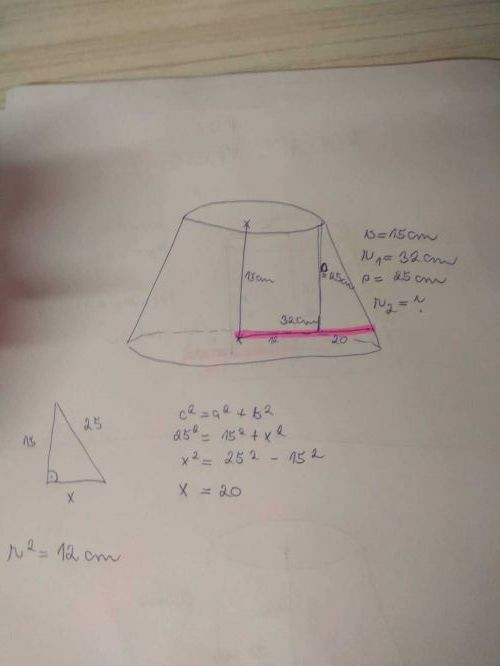 15cm
p=25cm
32cm
12 20
v=15cm
r₁=32cm
p= 25cm
r₂=?
15 25
x
c²=a²+b²
25²= 15²+x²
x²= 25² - 15²
X = 20
r²= 12cm